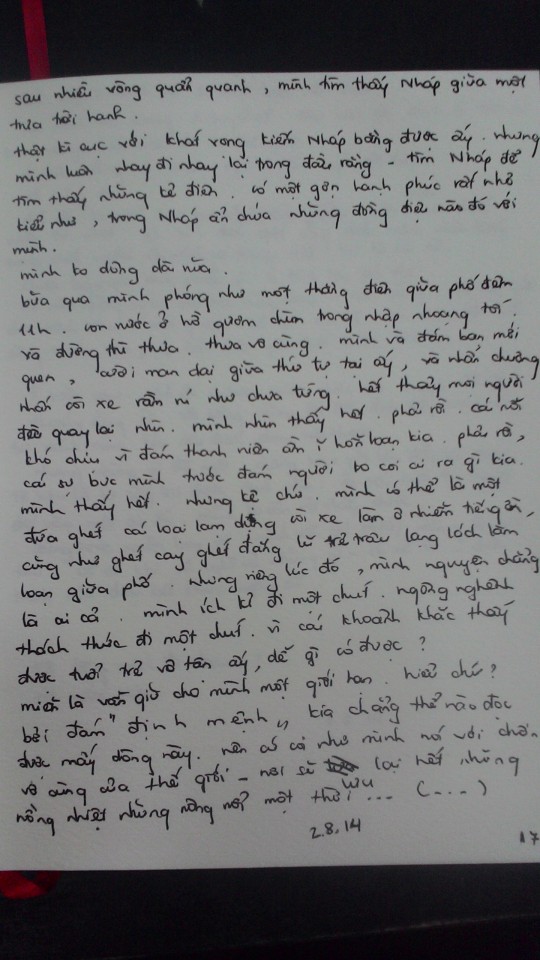 sau nhiều vòng quẩn quanh, mình tìm thấy Nháp giữa một
trưa trời hanh.
thật kì cục với khát vọng kiếm Nháp bằng được ấy. nhưng
mình luôn nhay đi nhay lại trong đầu rằng - tìm Nháp để
tìm thấy những kẻ điên. có một gợn hạnh phúc rất nhỏ
kiểu như, trong Nháp ẩn chứa những đồng điệu nào đó với
mình.
mình ko dông dài nữa.
bữa qua mình phóng như một thằng điên giữa phố đêm
11h. con nước ở hồ gươm chìm trong nhập nhoạng tối.
và đường thì thưa. thưa vô cùng. mình và đám bạn mới
quen, cười man dại giữa thứ tự tại ấy, và nhấn chuông
nhấn còi xe rầm rĩ như chưa từng. hết thảy mọi người
đều quay lại nhìn. mình nhìn thấy hết. phải rồi. cái nỗi
khó chịu vì đám thanh niên ầm ĩ hỗn loạn kia. phải rồi,
cái sự bực mình trước đám người ko coi ai ra gì kia.
mình thấy hết. nhưng kệ chứ. mình có thể là một
đứa ghét cái loại lạm dụng còi xe làm ô nhiễm tiếng ồn,
cũng như ghét cay ghét đắng lũ trẻ trâu lạng lách làm
loạn giữa phố. nhưng riêng lúc đó, mình nguyện chẳng
là ai cả. mình ích kỉ đi một chút. ngông nghênh
thách thức đi một chút. vì cái khoảnh khắc thấy
được tuổi trẻ vô tận ấy, dễ gì có được?
miễn là vẫn giữ cho mình một giới hạn. hiểu chứ?
bởi đám "định mệnh" kia chẳng thể nào đọc
được mấy dòng này. nên cứ coi như mình nói với chốn
vô cùng của thế giới - nơi sẽ lưu lại hết những
nồng nhiệt những nông nổi một thời ... (...)
2.8.14
17